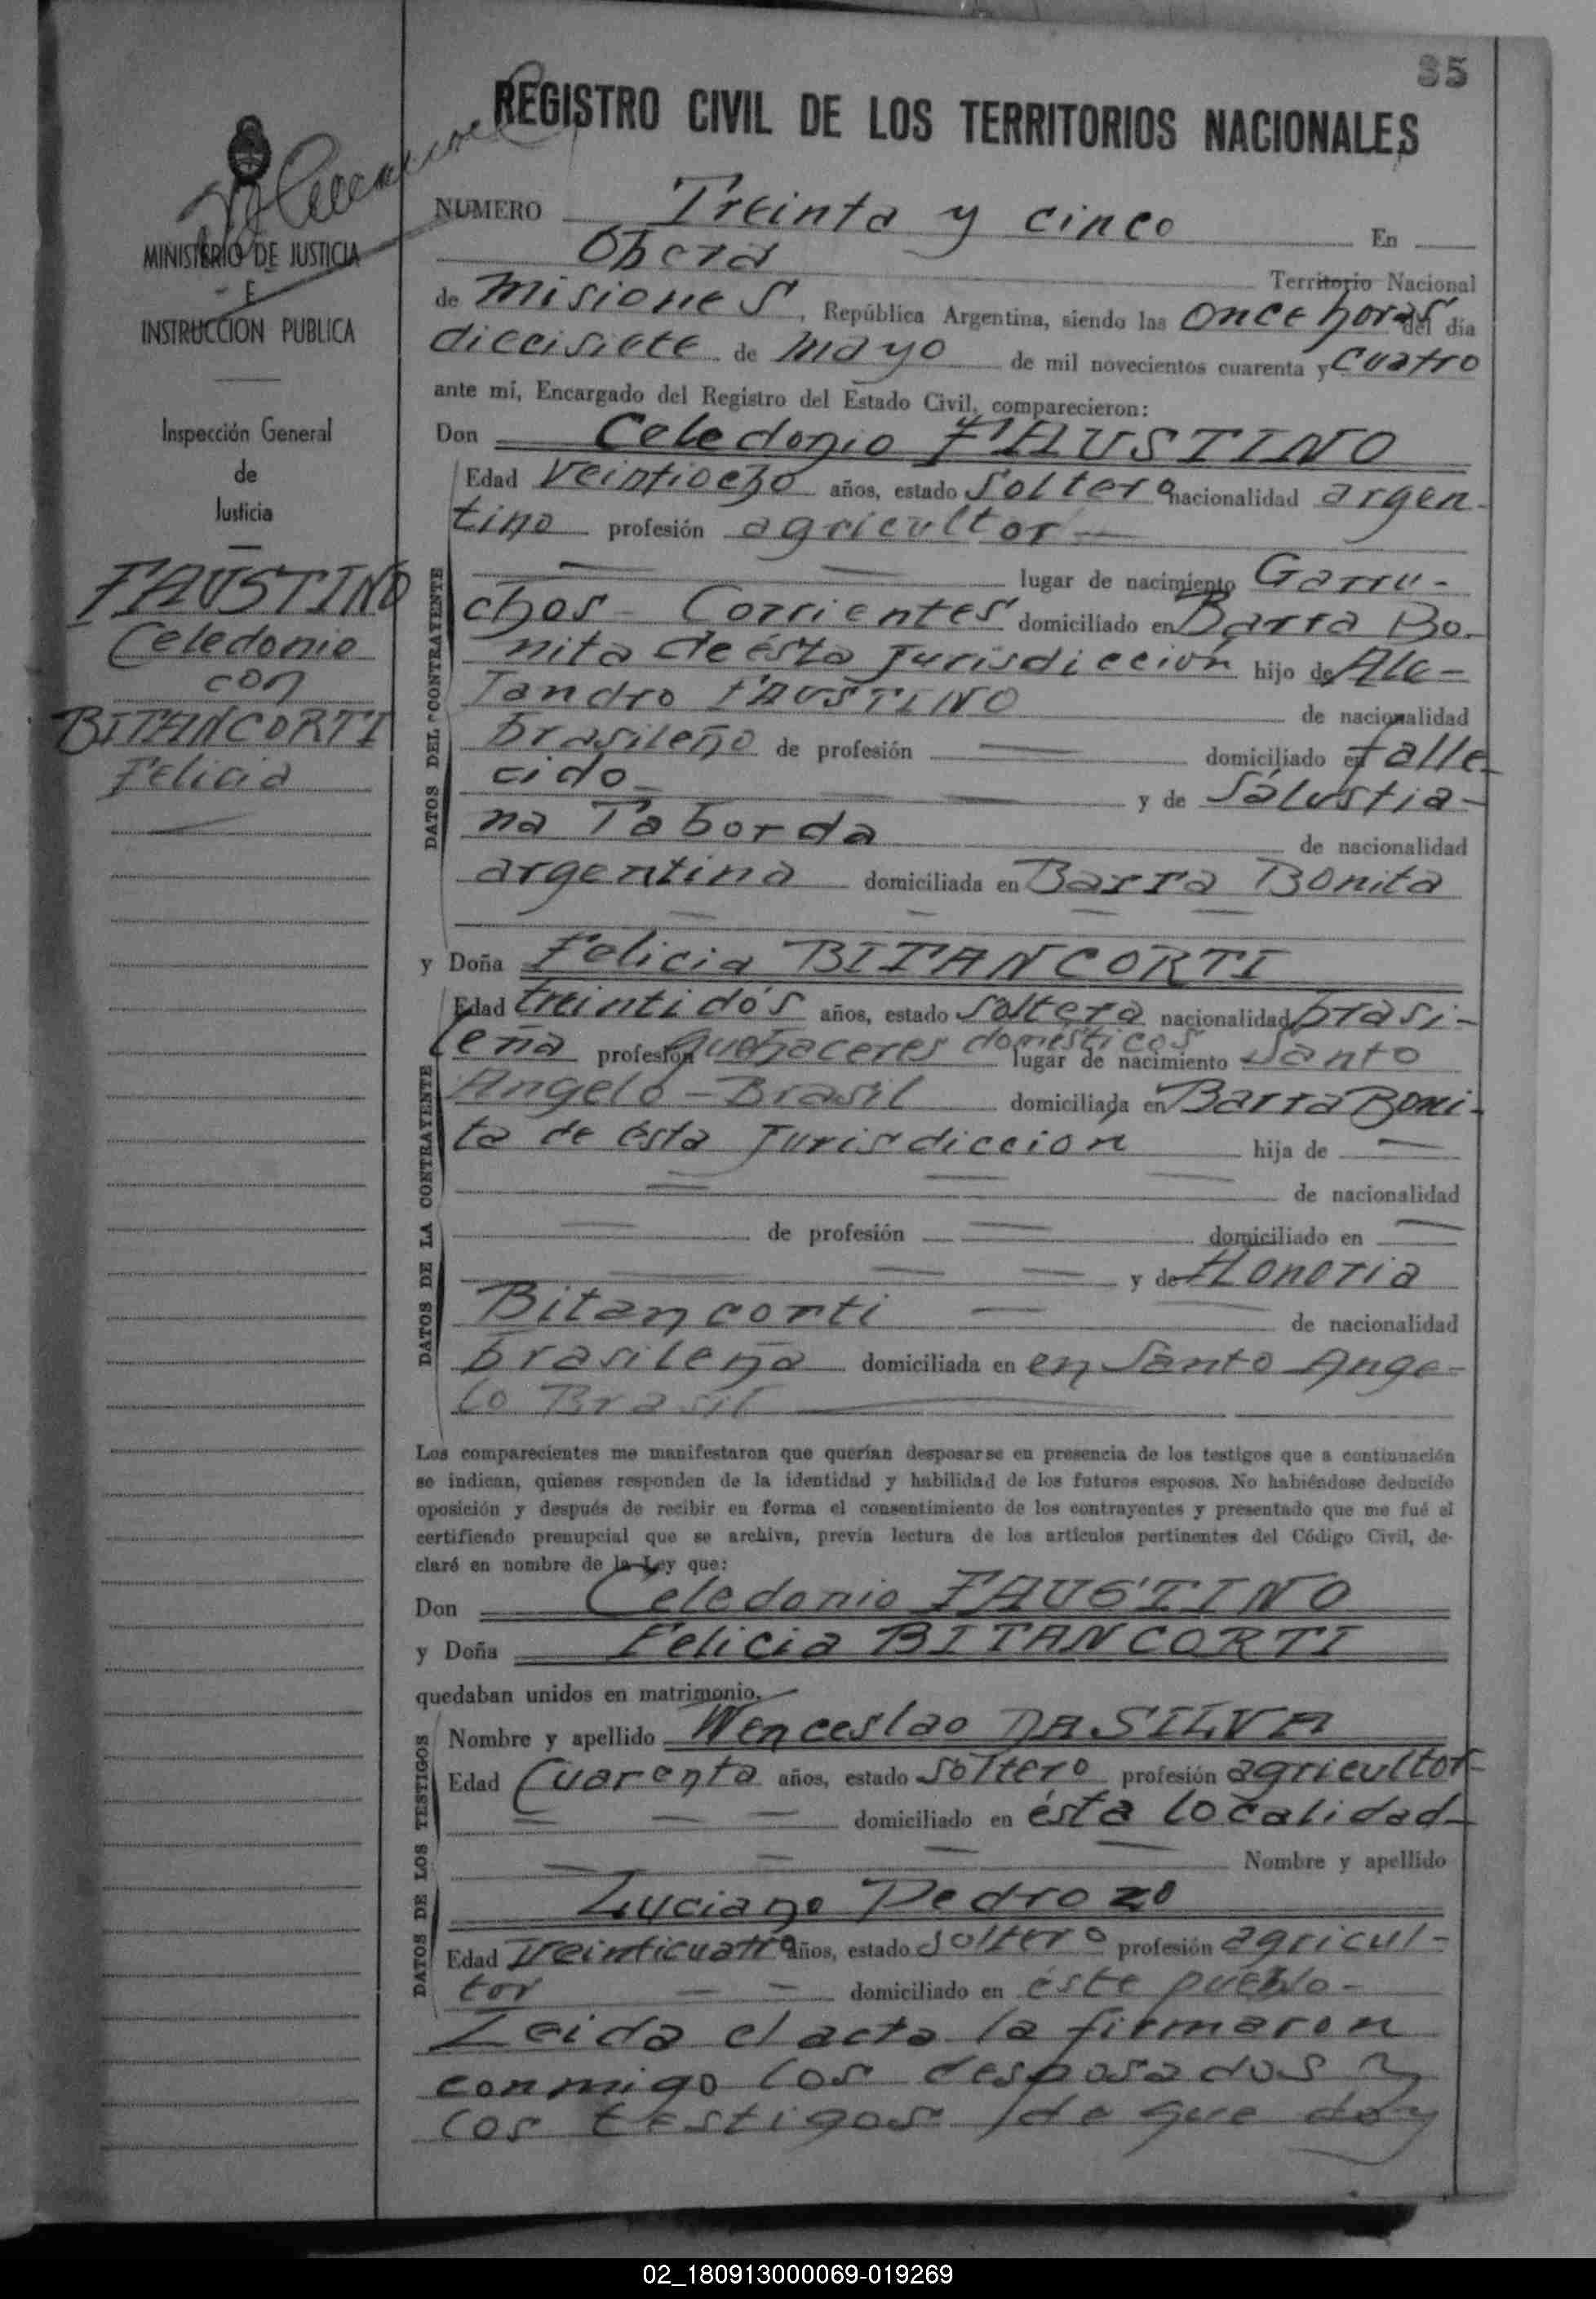 35
REGISTRO CIVIL DE LOS TERRITORIOS NACIONALES
MINISTERIO DE JUSTICIA
E
INSTRUCCION PUBLICA
Inspección General
de
Justicia
FAUSTINO
Celedonio
con
BITANCORTI
Felicia
NUMERO Treinta y cinco En
Oberá Territorio Nacional
de Misiones, República Argentina, siendo las once horas del día
diecisiete de Mayo de mil novecientos cuarenta y cuatro
ante mí, Encargado del Registro del Estado Civil, comparecieron:
Don Celedonio FAUSTINO
DATOS DEL CONTRAYENTE
Edad veintiocho años, estado soltero nacionalidad argen-
tino profesión agricultor —
lugar de nacimiento Garru-
chos - Corrientes domiciliado en Barra Bo-
nita de ésta Jurisdicción hijo de Ale-
Jandro FAUSTINO de nacionalidad
brasileño de profesión — domiciliado en falle-
cido - y de Salustia-
na Taborda de nacionalidad
argentina domiciliada en Barra Bonita
y Doña Felicia BITANCORTI
DATOS DE LA CONTRAYENTE
Edad treintidós años, estado soltera nacionalidad brasi-
leña profesión quehaceres domésticos lugar de nacimiento Santo
Angelo - Brasil domiciliada en Barra Boni-
ta de ésta Jurisdiccion hija de —
de nacionalidad
de profesión — domiciliado en —
y de Honoria
Bitancorti — de nacionalidad
brasileña domiciliada en en Santo Ange-
lo Brasil —
Los comparecientes me manifestaron que querían desposarse en presencia de los testigos que a continuación
se indican, quienes responden de la identidad y habilidad de los futuros esposos. No habiéndose deducido
oposición y después de recibir en forma el consentimiento de los contrayentes y presentado que me fué el
certificado prenupcial que se archiva, previa lectura de los artículos pertinentes del Código Civil, de-
claré en nombre de la Ley que:
Don Celedonio FAUSTINO
y Doña Felicia BITANCORTI
quedaban unidos en matrimonio.
DATOS DE LOS TESTIGOS
Nombre y apellido Wenceslao DA SILVA
Edad Cuarenta años, estado soltero profesión agricultor-
domiciliado en ésta localidad-
Nombre y apellido
Luciano Pedrozo
Edad veinticuatro años, estado soltero profesión agricul-
tor domiciliado en éste pueblo-
Leida el acta la firmaron
conmigo los desposados y
los testigos de que doy
02_180913000069-019269